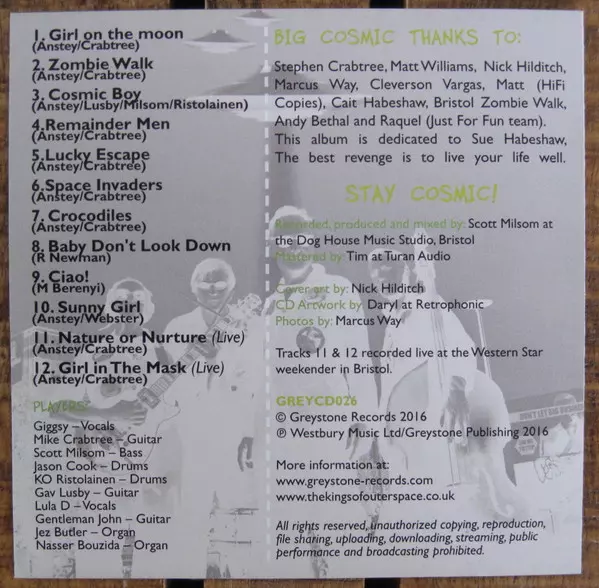 1. Girl on the moon
(Anstey/Crabtree)
2. Zombie Walk
(Anstey/Crabtree)
3. Cosmic Boy
(Anstey/Lusby/Milsom/Ristolainen)
4.Remainder Men
(Anstey/Crabtree)
5.Lucky Escape
(Anstey/Crabtree)
6.Space Invaders
(Anstey/Crabtree)
7. Crocodiles
(Anstey/Crabtree)
8. Baby Don't Look Down
(R Newman)
9. Ciao!
(M Berenyi)
10. Sunny Girl
(Anstey/Webster)
11. Nature or Nurture (Live)
(Anstey/Crabtree)
12. Girl in The Mask (Live)
(Anstey/Crabtree)
PLAYERS:
Giggsy – Vocals
Mike Crabtree – Guitar
Scott Milsom – Bass
Jason Cook – Drums
KO Ristolainen – Drums
Gav Lusby – Guitar
Lula D –Vocals
Gentleman John – Guitar
Jez Butler – Organ
Nasser Bouzida – Organ
BIG COSMIC THANKS TO:
Stephen Crabtree, Matt Williams, Nick Hilditch,
Marcus Way, Cleverson Vargas, Matt (HiFi
Copies), Cait Habeshaw, Bristol Zombie Walk,
Andy Bethal and Raquel (Just For Fun team).
This album is dedicated to Sue Habeshaw,
The best revenge is to live your life well.
STAY COSMIC!
Recorded, produced and mixed by: Scott Milsom at
the Dog House Music Studio, Bristol
Mastered by: Tim at Turan Audio
Cover art by: Nick Hilditch
CD Artwork by: Daryl at Retrophonic
Photos by: Marcus Way
Tracks 11 & 12 recorded live at the Western Star
weekender in Bristol.
GREYCD026
© Greystone Records 2016
℗ Westbury Music Ltd/Greystone Publishing 2016
More information at:
www.greystone-records.com
www.thekingsofouterspace.co.uk
All rights reserved, unauthorized copying, reproduction,
file sharing, uploading, downloading, streaming, public
performance and broadcasting prohibited.
DON'T LET BIG